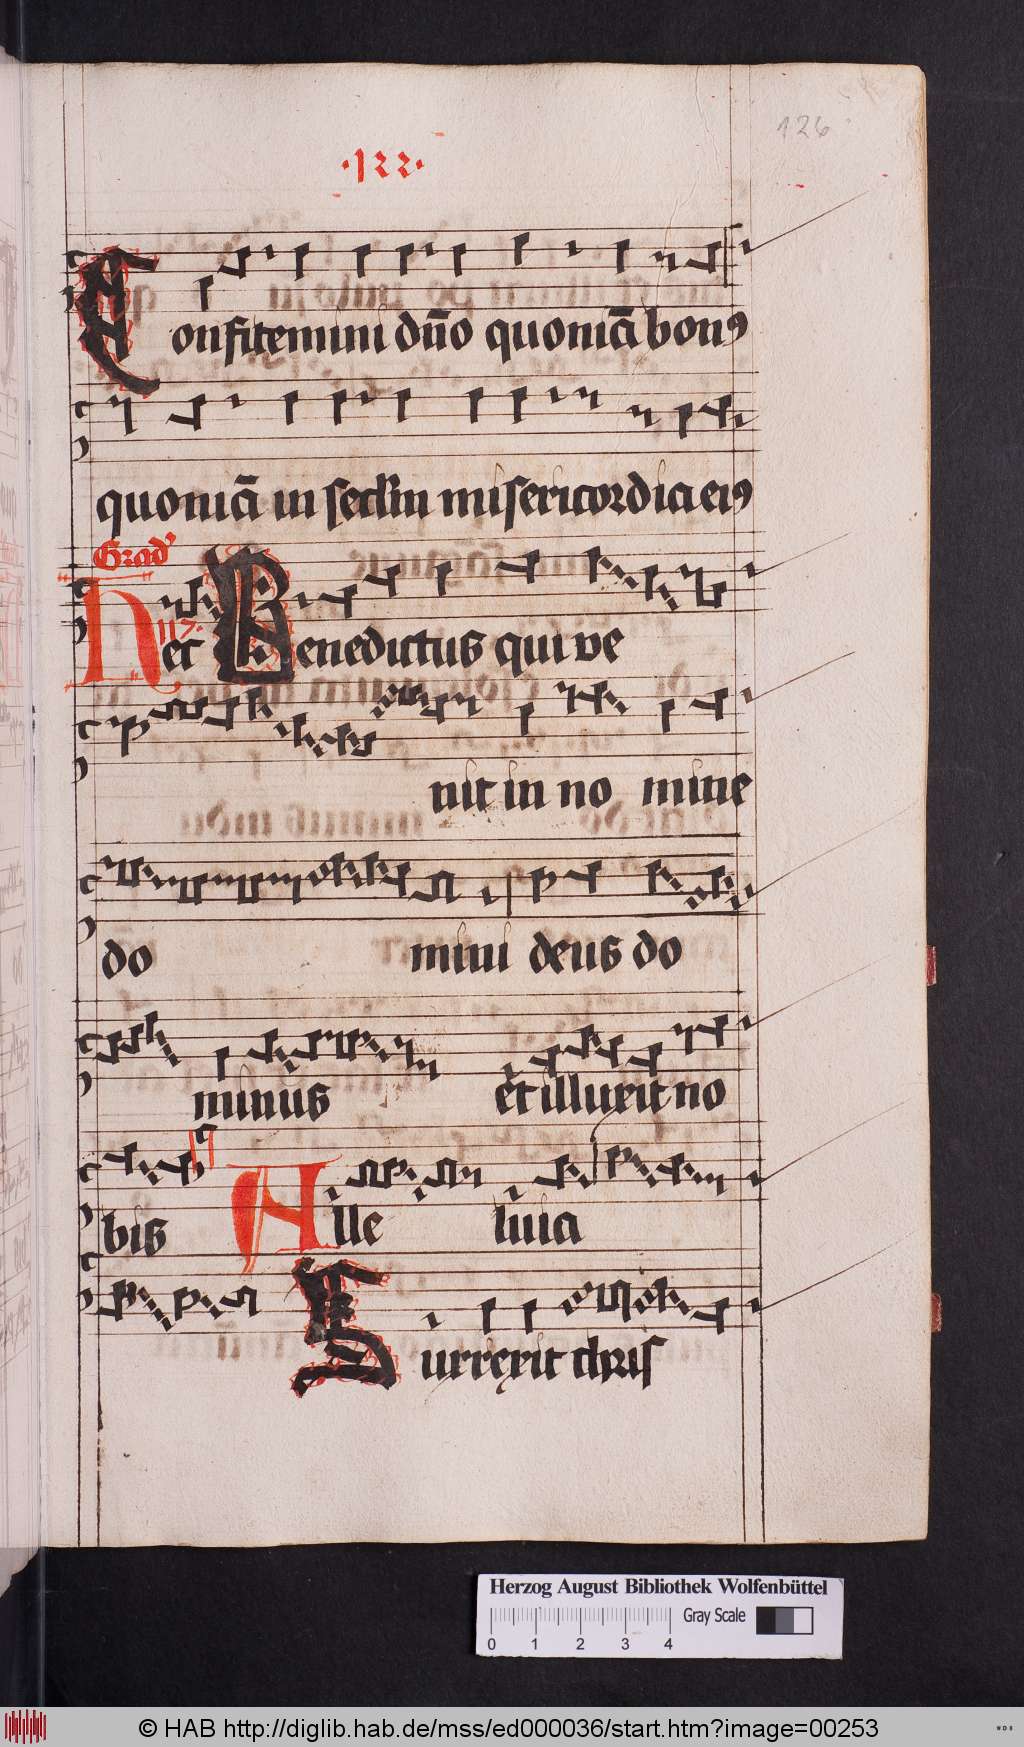 126
·122·
Confitemini dn̄o quoniā bonꝯ
quoniā in sectm̄ misericordia eiꝯ
Grad'
Hec 117. Benedictus qui ve
nit in no mine
do mini deus do
minus et illuxit no
bis Alle luia
Surrexit chris
Herzog August Bibliothek Wolfenbüttel
Gray Scale
0 1 2 3 4
© HAB http://diglib.hab.de/mss/ed000036/start.htm?image=00253